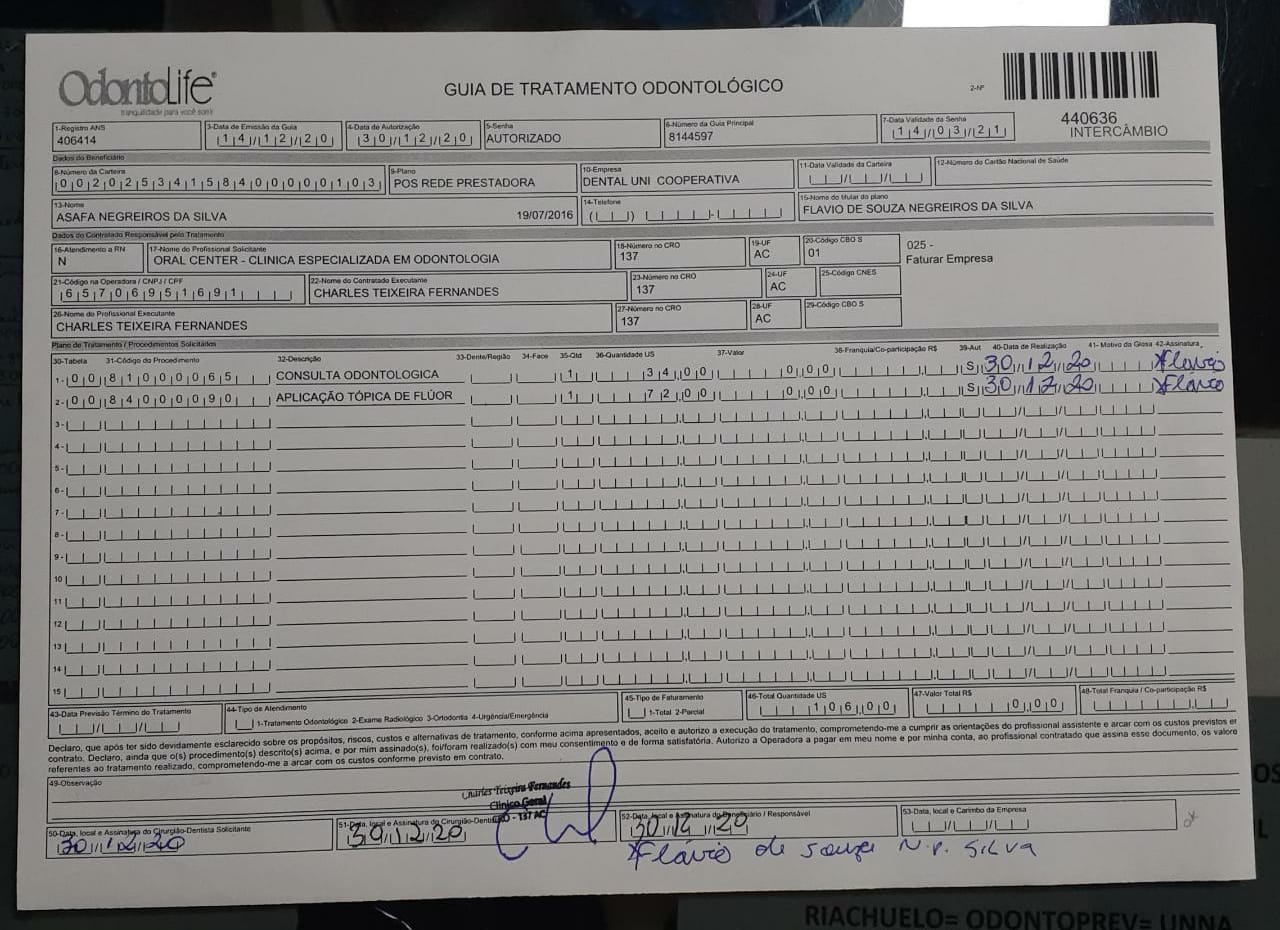 OdontoLife®
tranquilidade para você sorrir
GUIA DE TRATAMENTO ODONTOLÓGICO
2-Nº
440636
INTERCÂMBIO
1-Registro ANS
406414
3-Data de Emissão da Guia
14/12/20
4-Data de Autorização
30/12/20
5-Senha
AUTORIZADO
6-Número da Guia Principal
8144597
7-Data Validade da Senha
14/03/21
Dados do Beneficiário
8-Número da Carteira
00202534158400000103
9-Plano
POS REDE PRESTADORA
10-Empresa
DENTAL UNI COOPERATIVA
11-Data Validade da Carteira
12-Número do Cartão Nacional de Saúde
13-Nome
ASAFA NEGREIROS DA SILVA 19/07/2016
14-Telefone
15-Nome do titular do plano
FLAVIO DE SOUZA NEGREIROS DA SILVA
Dados do Contratado Responsável pelo Tratamento
16-Atendimento a RN
N
17-Nome do Profissional Solicitante
ORAL CENTER - CLINICA ESPECIALIZADA EM ODONTOLOGIA
18-Número no CRO
137
19-UF
AC
20-Código CBO S
01
025 -
Faturar Empresa
21-Código na Operadora / CNPJ / CPF
65706951691
22-Nome do Contratado Executante
CHARLES TEIXEIRA FERNANDES
23-Número no CRO
137
24-UF
AC
25-Código CNES
26-Nome do Profissional Executante
CHARLES TEIXEIRA FERNANDES
27-Número no CRO
137
28-UF
AC
29-Código CBO S
Plano de Tratamento / Procedimentos Solicitados
30-Tabela 31-Código do Procedimento 32-Descrição 33-Dente/Região 34-Face 35-Qtd 36-Quantidade US 37-Valor 38-Franquia/Co-participação R$ 39-Aut 40-Data de Realização 41- Motivo da Glosa 42-Assinatura
1- 00 81000065 CONSULTA ODONTOLOGICA 1 34,00 0,00 S 30/12/20 Flavio
2- 00 84000090 APLICAÇÃO TÓPICA DE FLÚOR 1 72,00 0,00 S 30/12/20 Flávio
3-
4-
5-
6-
7-
8-
9-
10
11
12
13
14
15
43-Data Previsão Término do Tratamento
44-Tipo de Atendimento
1-Tratamento Odontológico 2-Exame Radiológico 3-Ortodontia 4-Urgência/Emergência
45-Tipo de Faturamento
1-Total 2-Parcial
46-Total Quantidade US
106,00
47-Valor Total R$
0,00
48-Total Franquia / Co-participação R$
Declaro, que após ter sido devidamente esclarecido sobre os propósitos, riscos, custos e alternativas de tratamento, conforme acima apresentados, aceito e autorizo a execução do tratamento, comprometendo-me a cumprir as orientações do profissional assistente e arcar com os custos previstos em
contrato. Declaro, ainda que o(s) procedimento(s) descrito(s) acima, e por mim assinado(s), foi/foram realizado(s) com meu consentimento e de forma satisfatória. Autorizo a Operadora a pagar em meu nome e por minha conta, ao profissional contratado que assina esse documento, os valores
referentes ao tratamento realizado, comprometendo-me a arcar com os custos conforme previsto em contrato.
49-Observação
Charles Teixeira Fernandes
Clínico Geral
CRO - 137 AC
50-Data, local e Assinatura do Cirurgião-Dentista Solicitante
30/12/20
51-Data, local e Assinatura do Cirurgião-Dentista
30/12/20
52-Data, local e Assinatura do Beneficiário / Responsável
30/12/20
Flávio de souza N.P. SILVA
53-Data, local e Carimbo da Empresa
RIACHUELO= ODONTOPREV= UNNA